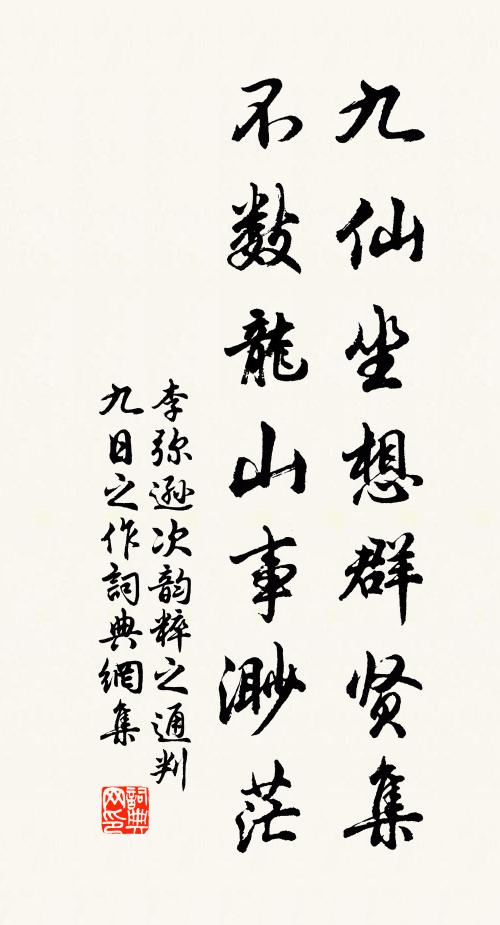 九仙坐想群贤集
不数龍山事渺茫
李弥逊次韵粹之通判
九日之作詞典網集
詞典网印